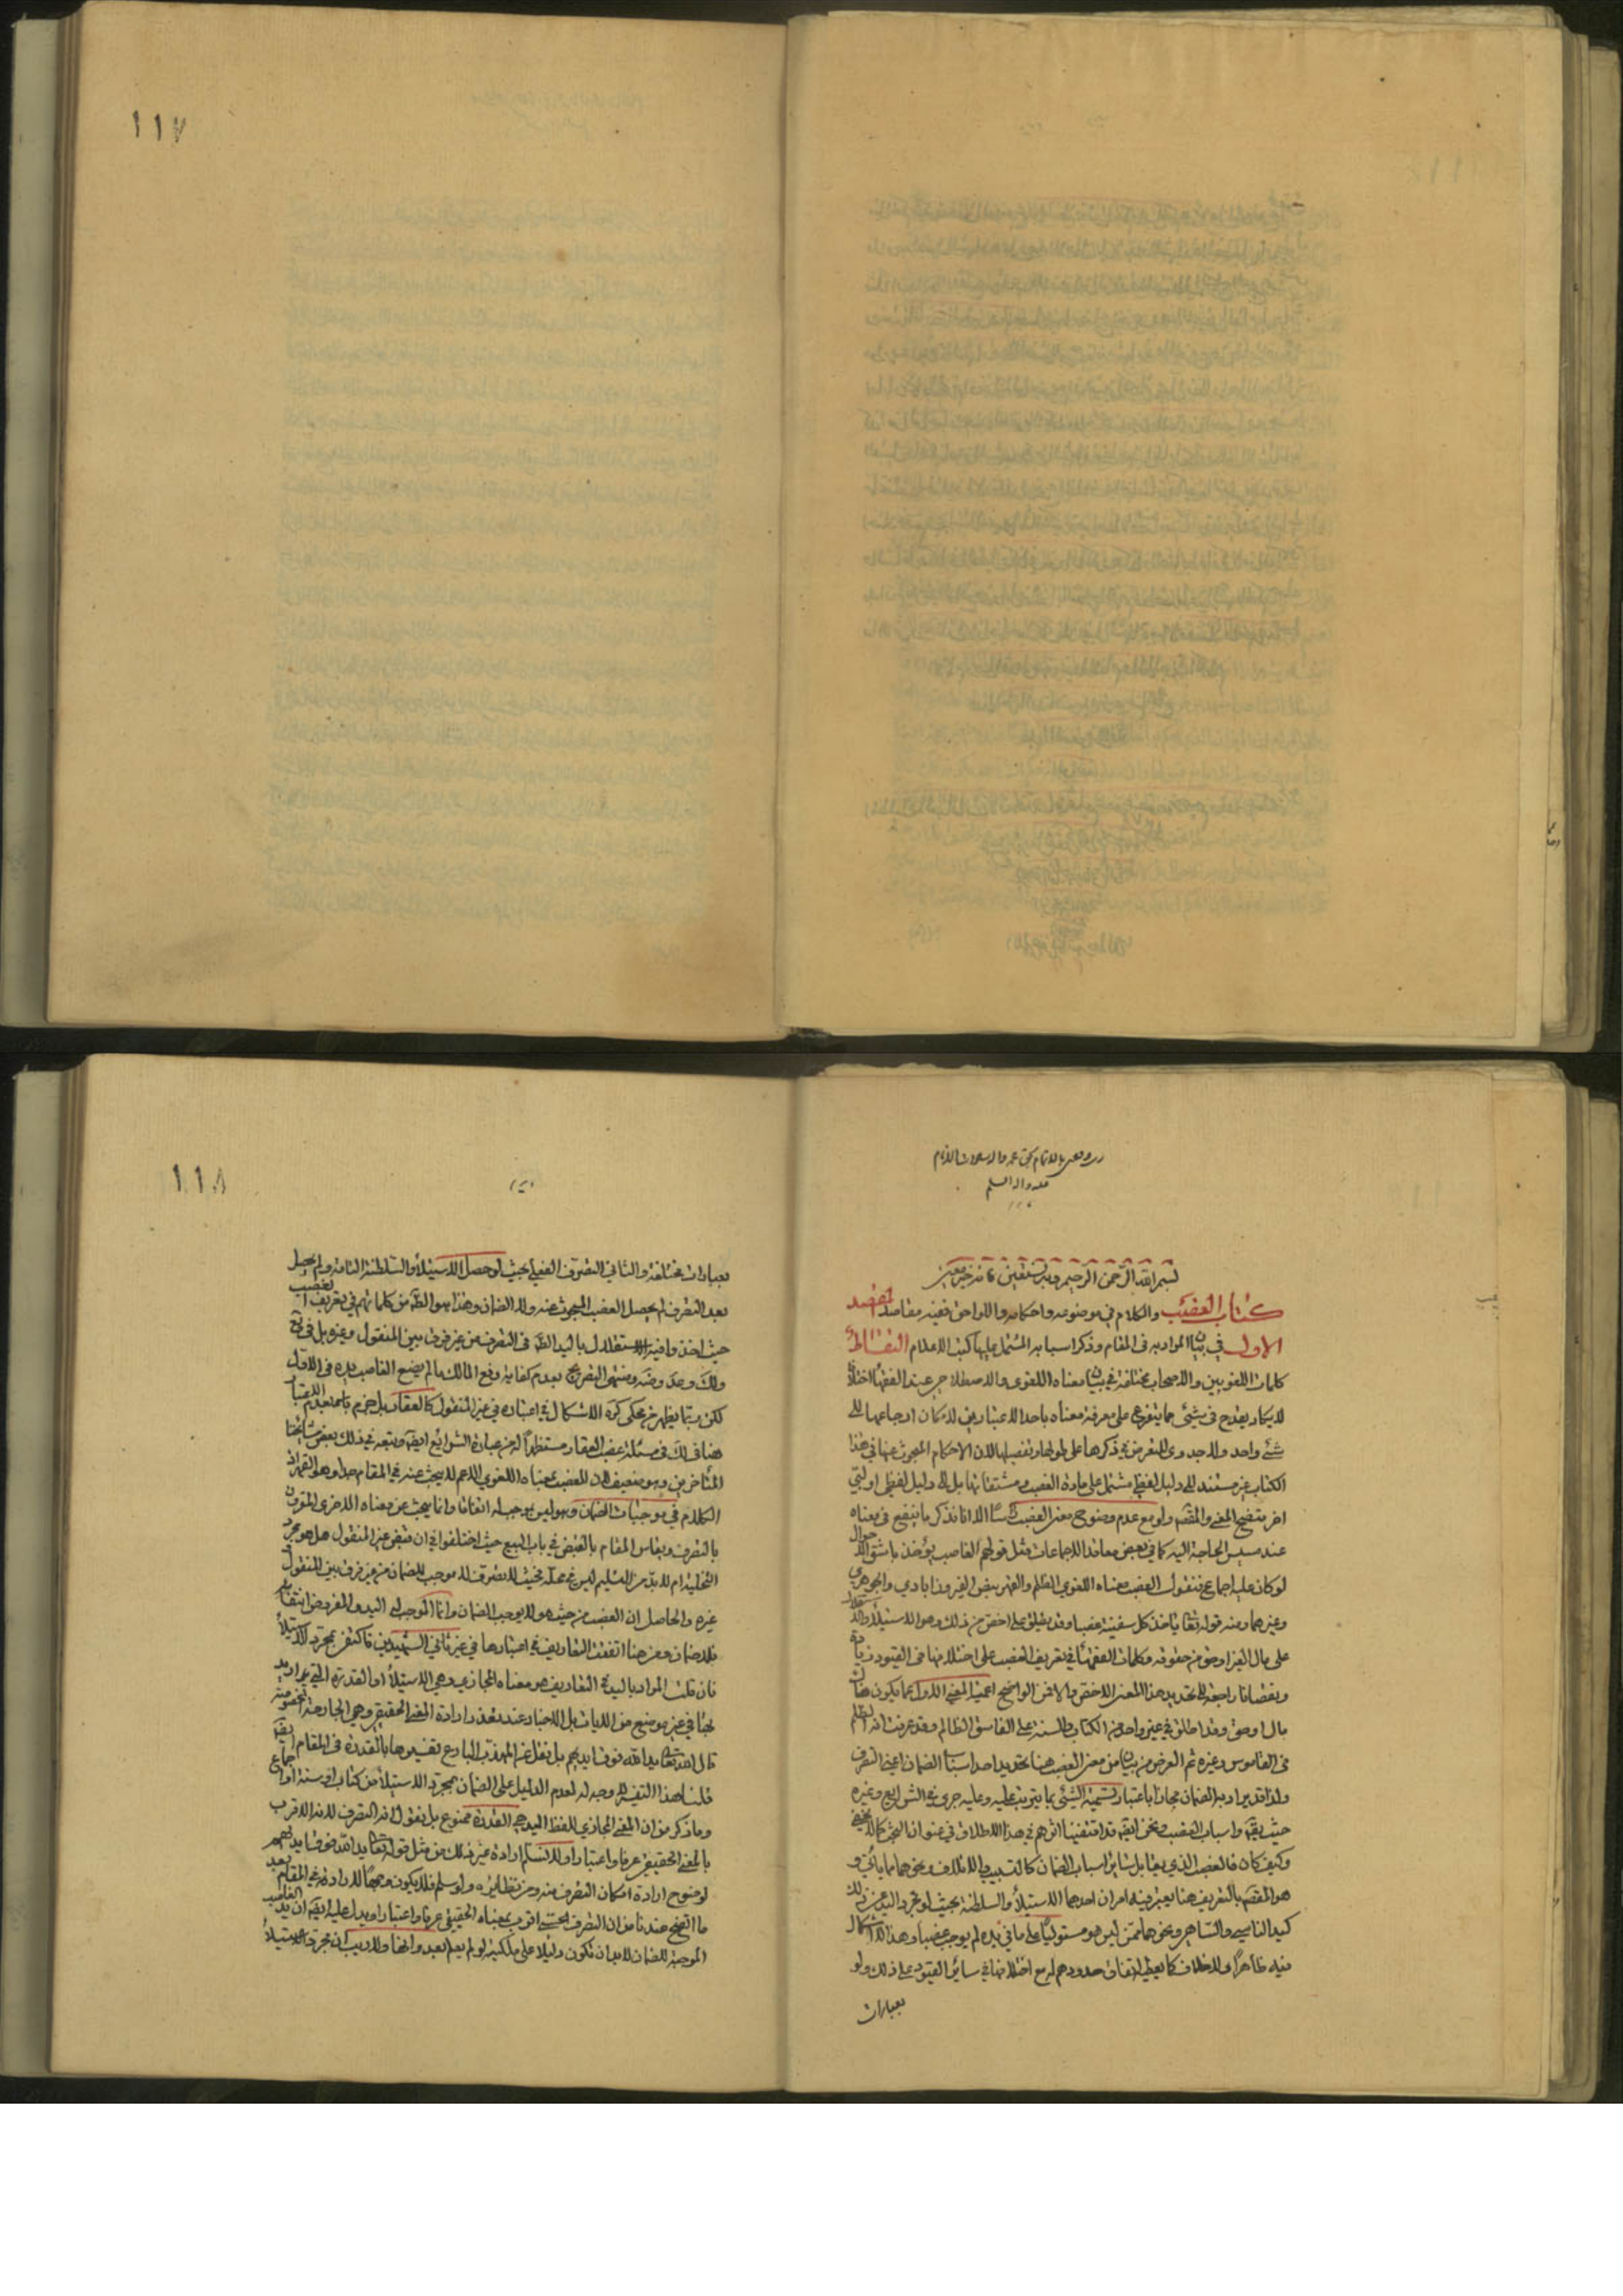 ١١٧
بسم الله الرحمن الرحيم وبه نستعين فانه خير معين
كتاب الغصب والكلام في موضوعه واحكامه واللواحق ففيه مقاصد المقصد
الاول في بيان المراد به في المقام وذكر اسبابه المشتمل عليها كتب الاعلام
كلمات اللغويين والاصحاب مختلفة في بيان معناه اللغوي والاصطلاحي عند الفقهاء اختلافا
لا يكاد يقدح في شيء مما يتفرع على معرفة معناه باحد الاعتبارين لامكان ارجاعها الى
شيء واحد ولا جدوى للتعرض في ذكرها على طولها وتفصيلها لان الاحكام المبحوث عنها في هذا
الكتاب غير مستند الى دليل لفظي مشتمل على مادة الغصب ومشتقاتها بل الى دليل لفظي او لبي
اخر متضح المعنى والمقصد ولو مع عدم وضوح معنى الغصب الا انا نذكر ما ينفع في معناه
عند مسيس الحاجة اليه كما في بعض معاقد الاجماعات مثل قولهم الغاصب يؤخذ باشق الاحوال
لو كان عليه اجماع فنقول الغصب معناه اللغوي الظلم والقهر بنص الفيروزابادي والجوهري
وغيرهما ومنه قوله تعالى ياخذ كل سفينة غصبا وقد يطلق على اخص من ذلك وهو الاستيلاء
على مال الغير او حق من حقوقه وكلمات الفقهاء في تعريف الغصب على اختلافها في القيود زيادة
ونقصانا راجعة الى تحديد هذا المعنى الاخص
مال او حق وقد اطلق في غير واحد من الكتاب والسنة على الفاسق الظالم وقد عرفت انه الظلم
في القاموس وغيره ثم الغرض من بيان معنى الغصب هنا تحديد احد اسباب الضمان اعني التصرف
ولذا قد يراد به الضمان مجازا باعتبار تسمية الشيء بما يترتب عليه وعليه جرى في الشرايع وغيره
وكيف كان فالغصب الذي يقابل ساير اسباب الضمان كالتسبيب والاتلاف ونحوهما
هو المقصد بالتعريف هنا يعتبر فيه امران احدهما الاستيلاء والسلطنة بحيث لو تجرد اليد عن ذلك
كيد الناسي والساهي ونحوهما ممن ليس هو مستوليا على ما في يده لم يوجب غصبا وهذا لا اشكال
فيه ظاهرا ولا خلاف كما يعطيه اتفاق حدودهم مع اختلافها في سائر القيود على ذلك ولو
بعبارات
١١٨
بعبارات مختلفة والثاني التصرف الفعلي بحيث لو حصل الاستيلاء والسلطنة التامة ولم يحصل
بعد التصرف لم يحصل الغصب المبحوث عنه ولا الضمان وهذا هو الظاهر من كلماتهم في تعريف الغصب
حيث اخذوا فيه الاستقلال باليد الظاهر في التصرف من غير فرق بين المنقول وغيره بل في
التصريح بعدم كفاية رفع المالك ما لم يضع الغاصب يده في الاول
لكن ربما يظهر من محكي كره الاشكال في اعتباره في غير المنقول كالعقار بل جزم بعدم الاعتبار
هنا في لك في مسئلة غصب العقار مستظهرا له من عبارة الشرايع ايضا وتبعه في ذلك بعض مشايخنا
المتاخرين وهو ضعيف لان الغصب بمعناه اللغوي الاعم لا يبحث عنه في المقام
الكلام في موجبات الضمان وهو ليس بموجب له اتفاقا وانما يبحث عن معناه الاخر المقرون
بالتصرف ويقاس المقام بالقبض في باب البيع حيث اختلفوا في ان قبض غير المنقول هل هو مجرد
التخلية ام لا بد من التسليم
غيره والحاصل ان الغصب من حيث هو لا يوجب الضمان وانما الموجب له اليد والمفروض انتفاء
فلا ضمان ومن هنا اتفقت التعاريف في اعتبارها في غير ثاني الشهيدين فاكتفى بمجرد الاستيلاء
فان قلت المراد باليد في التعاريف هو معناه المجازي وهي الاستيلاء او القدرة التي يراد بها
في غير موضع من الايات بل الاخبار عند تعذر ارادة المعنى الحقيقي وهي الجارحة المخصوصة
قال الله تعالى يد الله فوق ايديهم بل نقل عن المهذب البارع تفسيرها بالقدرة في المقام ايضا
قلنا هذا التفسير لا وجه له لعدم الدليل على الضمان بمجرد الاستيلاء من كتاب او سنة او اجماع
وما ذكر من ان المعنى المجازي للفظ اليد هي القدرة ممنوع بل نقول انه التصرف لانه الاقرب
بالمعنى الحقيقي عرفا واعتبارا ولا نسلم ارادة غير ذلك من مثل قوله تعالى يد الله فوق ايديهم
لوضوح ارادة امكان التصرف منه ومن نظايره ولو سلم فلا يكون وجها للارادة في المقام بعد
ما اتضح عندنا من ان التصرف الحسي اقرب بمعناه الحقيقي عرفا واعتبارا ويدل عليه ايضا ان يد الغاصب
الموجبة للضمان لا بد ان تكون دليلا على ملكيته لو لم يعلم الغصب